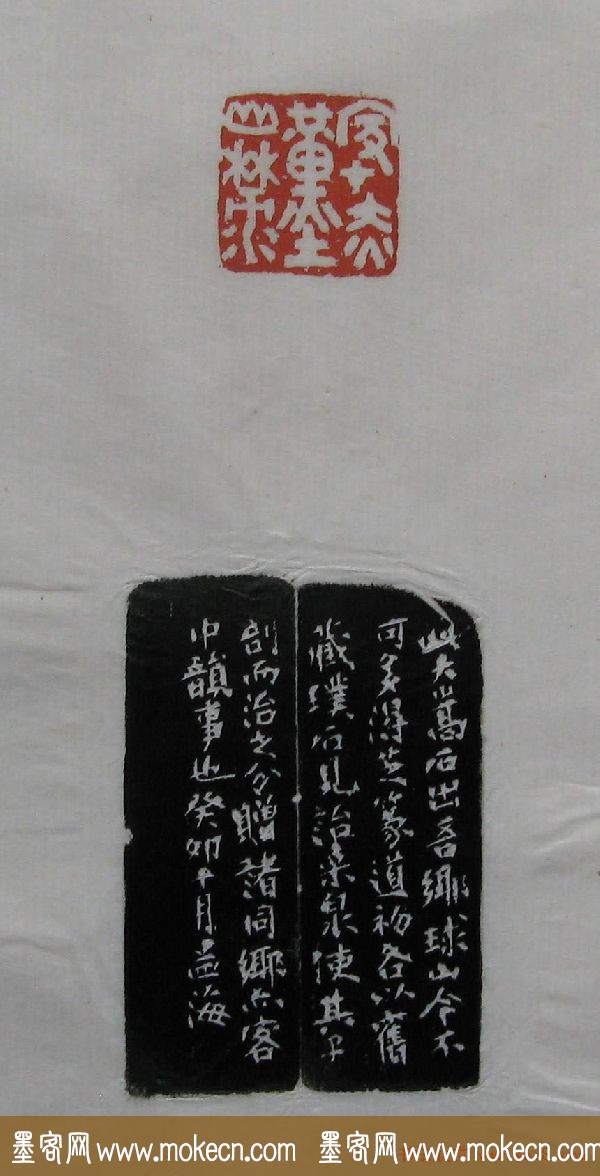 此大嵩石出吾鄉球山今不
可多得篆道初各以舊
藏璞石見詒使其
剖而治之分贈諸同鄉亦客
中韻事也癸卯十月海
墨客网 www.mokecn.com 墨客网 www.mokecn.com